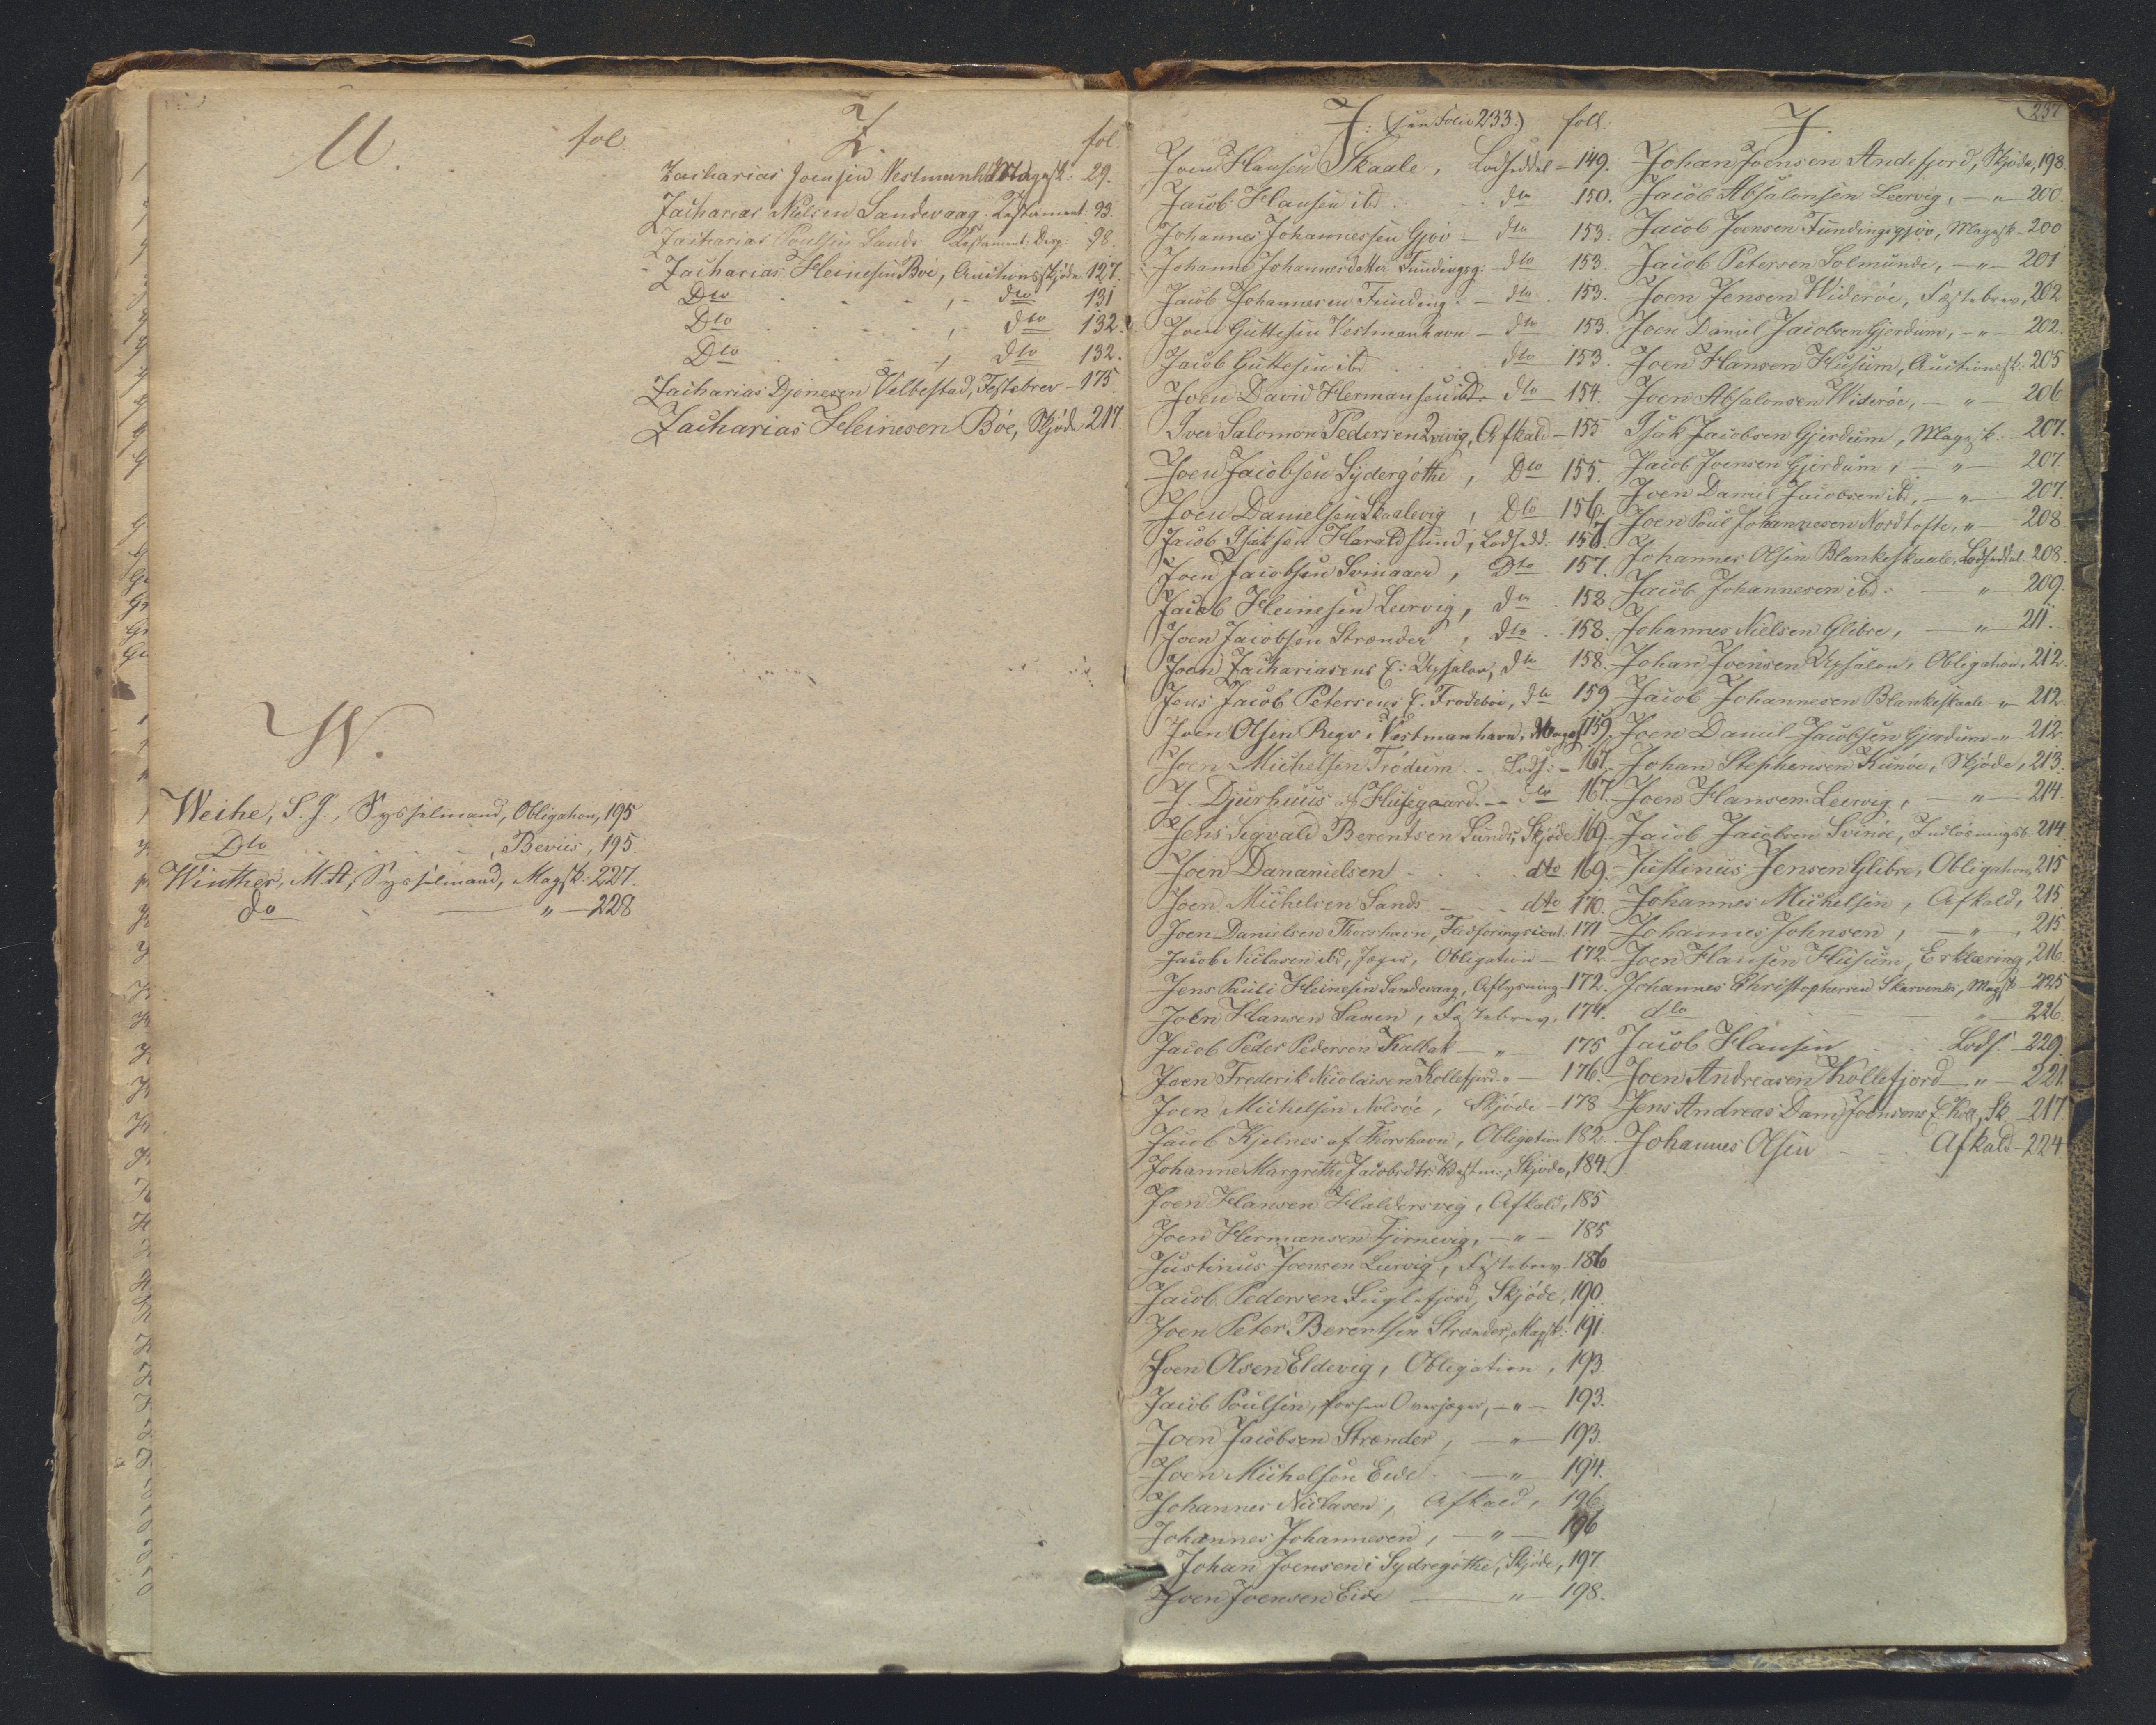 U. fol.
Z. fol.
Zacharias Joensen Vestmanh. Magesk: 29.
Zacharias Nielsen Sandevaag. Testament: 93.
Zacharias Poulsen Sands Testament: Disp: 98.
Zacharias Heinesen Böe, Auctionsskjöde 127.
Dto , dto 131
Dto , dto 132.
Dto , dto 132.
Zacharias Djonesen Velbestad, Festebrev – 175.
Zacharias Heinesen Böe, Skjöde 217.
W.
Weihe, S. J., Sysselmand, Obligation, 195
Dto , Beviis, 195.
Winther, M. A, Sysselmand, Magsk: 227.
do — " — 228
J: (sen Folio 233:) foll:
Joen Hansen Skaale, Lodseddel – 149.
Jacob Hansen ibd: dto 150.
Johannes Johannessen Gjov – dto 153.
Johanne Johannesdatter Fundingsg: – dto 153.
Jacob Johannesen Funding: – dto 153.
Joen Guttesen Vestmanhavn – dto 153.
Jacob Guttesen ibd dto 153.
Joen David Hermansen ibd – dto 154.
Iver Salomon Pedersen Qvivig, Afkald – 155
Joen Jacobsen Sydergöthe, Dto 155.
Joen Danielsen Skaalevig, Dto 156.
Jacob Isaksen Haraldsund, Lodsedd: 157.
Joen Jacobsen Svinaaer, Dto 157.
Jacob Heinesen Leervig, dto 158.
Joen Jacobsen Strænder, dto 158.
Joen Zachariasens E: Upsalon, dto 158.
Jens Jacob Petersens E. Frodeböe, dto 159
Joen Olsen Regv i Vestmanhavn, Magesk 159.
Joen Michelsen Trödum – Lods: – 167.
J. Djurhuus af Husegaard. – dto 167.
Jens Sigvald Berentsen Sunds, Skjöde 169.
Joen Dananielsen dto 169.
Joen Michelsen Sands – dto 170.
Joen Danielsen Thorshavn, 171
Jacob Niclasen ibd, Jæger, Obligation – 172.
Jens Pauli Heinesen Sandevaag, Aflysning 172.
Joen Hansen Saxen, Festebrev, 174.
Jacob Peder Pedersen Kalbak — " — 175
Joen Frederik Nicolaisen Kollefjord – " — 176.
Joen Michelsen Nolsöe, Skjöde – 178
Jacob Kjelnes af Thorshavn, Obligation 182.
Johanne Margrethe Jacobsdtr. Vestm:, Skjöde, 184.
Joen Hansen Haldersvig, Afkald, 185
Joen Hermansen Tjörnevig, — " — 185
Justinus Joensen Leirvig, Festebrev 186
Jacob Pedersen Fuglefjord, Skjöde, 190.
Joen Peter Berentsen Strænder, Magsk: 191.
Joen Olsen Eldevig, Obligation, 193
Jacob Poulsen, forhen Overjæger, — " — 193.
Joen Jacobsen Strender, — " — 193.
Joen Michelsen Eide — " — 194.
Johannes Niclasen, Afkald, 196.
Johannes Johannesen, — " — 196
Johan Joensen i Sydregöthe, Skjöde, 197.
Joen Joensen Eide — " — 198.
J. 237
Johan Joensen Andefjord, Skjöde, 198.
Jacob Absalonsen Leervig, — " — 200.
Jacob Joensen Fundingsgjov, Magesk – 200
Jacob Petersen Solmunde, — " — 201
Joen Jensen Wideröe, Festebrev, 202
Joen Daniel Jacobsen Gjerdum, — " — 202.
Joen Hansen Husum, Auctionssk: 205
Joen Absalonsen Wideröe, — " — 206
Isak Jacobsen Gjerdum, Magesk: – 207.
Jacob Joensen Gjerdum, — " — 207.
Joen Daniel Jacobsen ibd, — " — 207.
Joen Poul Johannesen Nordtofte, " — 208.
Johannes Olsen Blankeskaale, Lodseddel 208.
Jacob Johannesen ibd: — " 209.
Johannes Nielsen Glibre, — " 211.
Johan Joensen Upsalon, Obligation, 212.
Jacob Johannesen Blankeskaale – " – 212.
Joen Daniel Jacobsen Gjerdum – " – 212.
Johan Stephensen Kunöe, Skjöde, 213.
Joen Hansen Leervig, — " — 214.
Jacob Jacobsen Svinöe, Indlösningsb. 214
Justinus Jensen Glibre, Obligation, 215
Johannes Michelsen, Afkald, 215.
Johannes Johnsen, — " —, 215.
Joen Hansen Husum, Erklæring, 216.
Johannes Christophersen Skarvenes, Magsk – 225
dto — " — 226
Jacob Hansen Lods. – 229.
Joen Andreasen Kollefjord — " — 221.
Jens Andreas Dam Joensens E. Sk – 217
Johannes Olsen Afkald – 224.